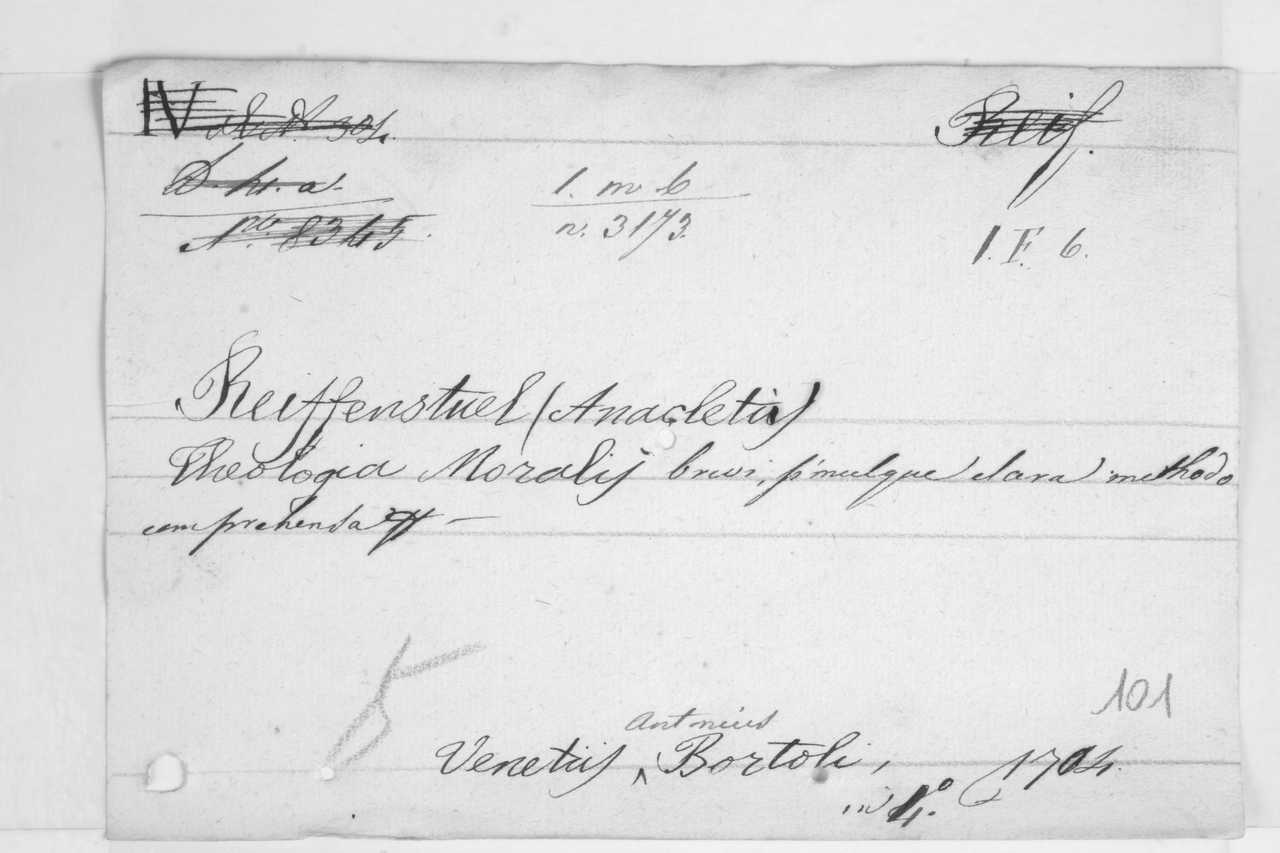 Reif.
1. m. b
n. 3173.
1. F. 6.
Reiffenstuel (Anacletus)
Theologia Moralis brevi, simulque clara methodo
comprehensa —
101
Antonius
Venetiis, Bortoli, 1704.
in 4.º